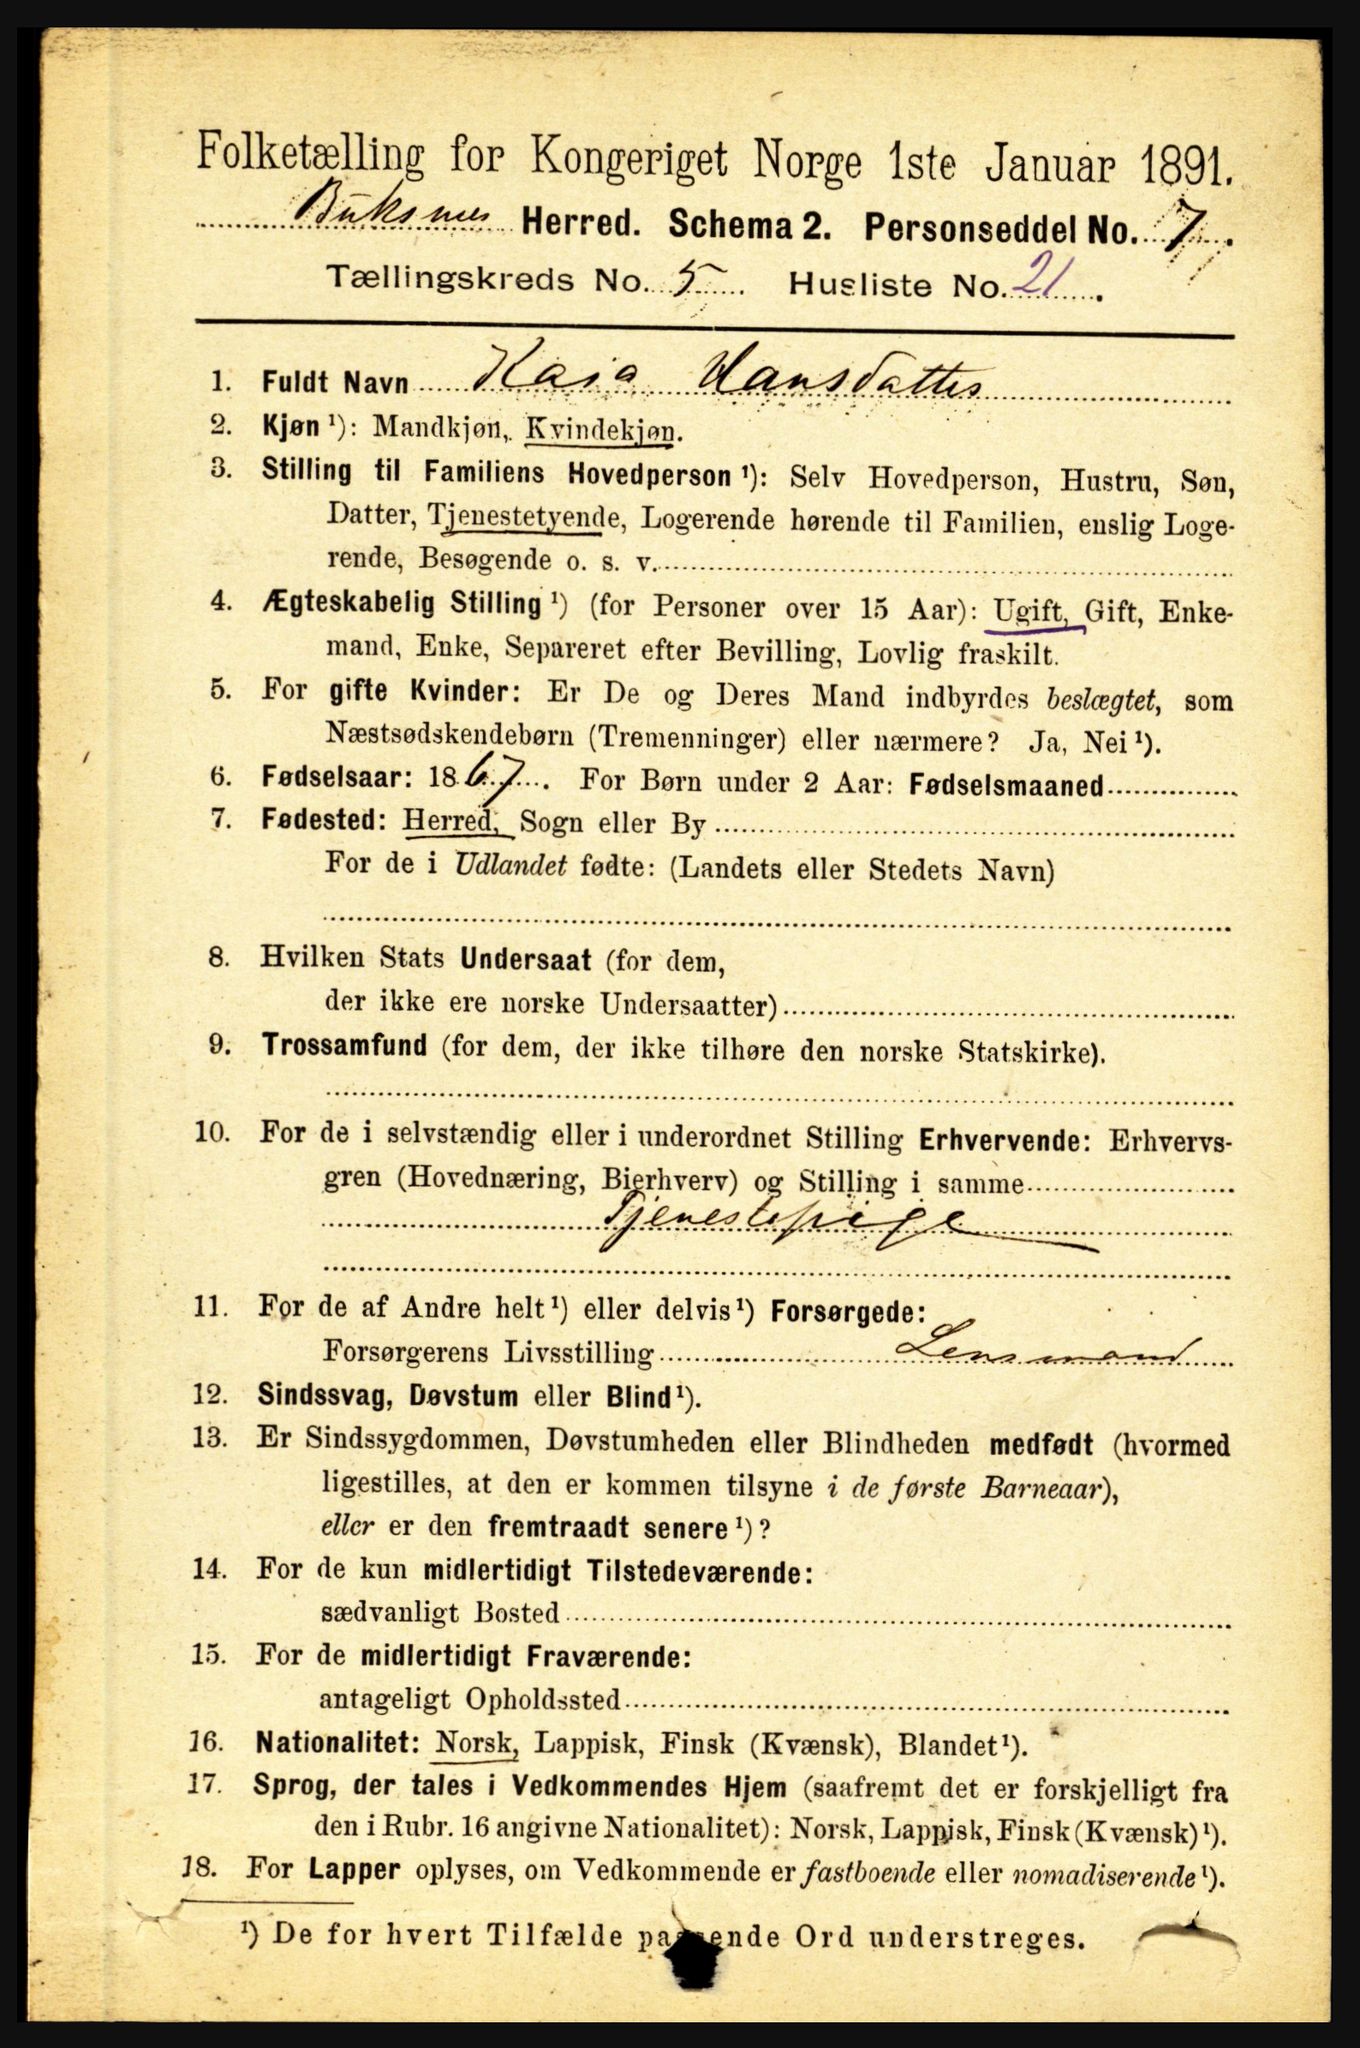 Folketælling for Kongeriget Norge 1ste Januar 1891.
Buksnes Herred. Schema 2. Personseddel No. 7.
Tællingskreds No. 5 Husliste No. 21.
1. Fuldt Navn Kaia Hansdatter
2. Kjøn ¹): Mandkjøn, Kvindekjøn.
3. Stilling til Familiens Hovedperson ¹): Selv Hovedperson, Hustru, Søn,
Datter, Tjenestetyende, Logerende hørende til Familien, enslig Loge-
rende, Besøgende o. s. v.
4. Ægteskabelig Stilling ¹) (for Personer over 15 Aar): Ugift, Gift, Enke-
mand, Enke, Separeret efter Bevilling, Lovlig fraskilt.
5. For gifte Kvinder: Er De og Deres Mand indbyrdes beslægtet, som
Næstsødskendebørn (Tremenninger) eller nærmere? Ja, Nei ¹).
6. Fødselsaar: 1867. For Børn under 2 Aar: Fødselsmaaned
7. Fødested: Herred, Sogn eller By
For de i Udlandet fødte: (Landets eller Stedets Navn)
8. Hvilken Stats Undersaat (for dem,
der ikke ere norske Undersaatter)
9. Trossamfund (for dem, der ikke tilhøre den norske Statskirke).
10. For de i selvstændig eller i underordnet Stilling Erhvervende: Erhvervs-
gren (Hovednæring, Bierhverv) og Stilling i samme
Tjenestepige
11. For de af Andre helt ¹) eller delvis ¹) Forsørgede:
Forsørgerens Livsstilling Lensmand
12. Sindssvag, Døvstum eller Blind ¹).
13. Er Sindssygdommen, Døvstumheden eller Blindheden medfødt (hvormed
ligestilles, at den er kommen tilsyne i de første Barneaar),
eller er den fremtraadt senere ¹)?
14. For de kun midlertidigt Tilstedeværende:
sædvanligt Bosted
15. For de midlertidigt Fraværende:
antageligt Opholdssted
16. Nationalitet: Norsk, Lappisk, Finsk (Kvænsk), Blandet ¹).
17. Sprog, der tales i Vedkommendes Hjem (saafremt det er forskjelligt fra
den i Rubr. 16 angivne Nationalitet): Norsk, Lappisk, Finsk (Kvænsk) ¹).
18. For Lapper oplyses, om Vedkommende er fastboende eller nomadiserende ¹).
¹) De for hvert Tilfælde passende Ord understreges.